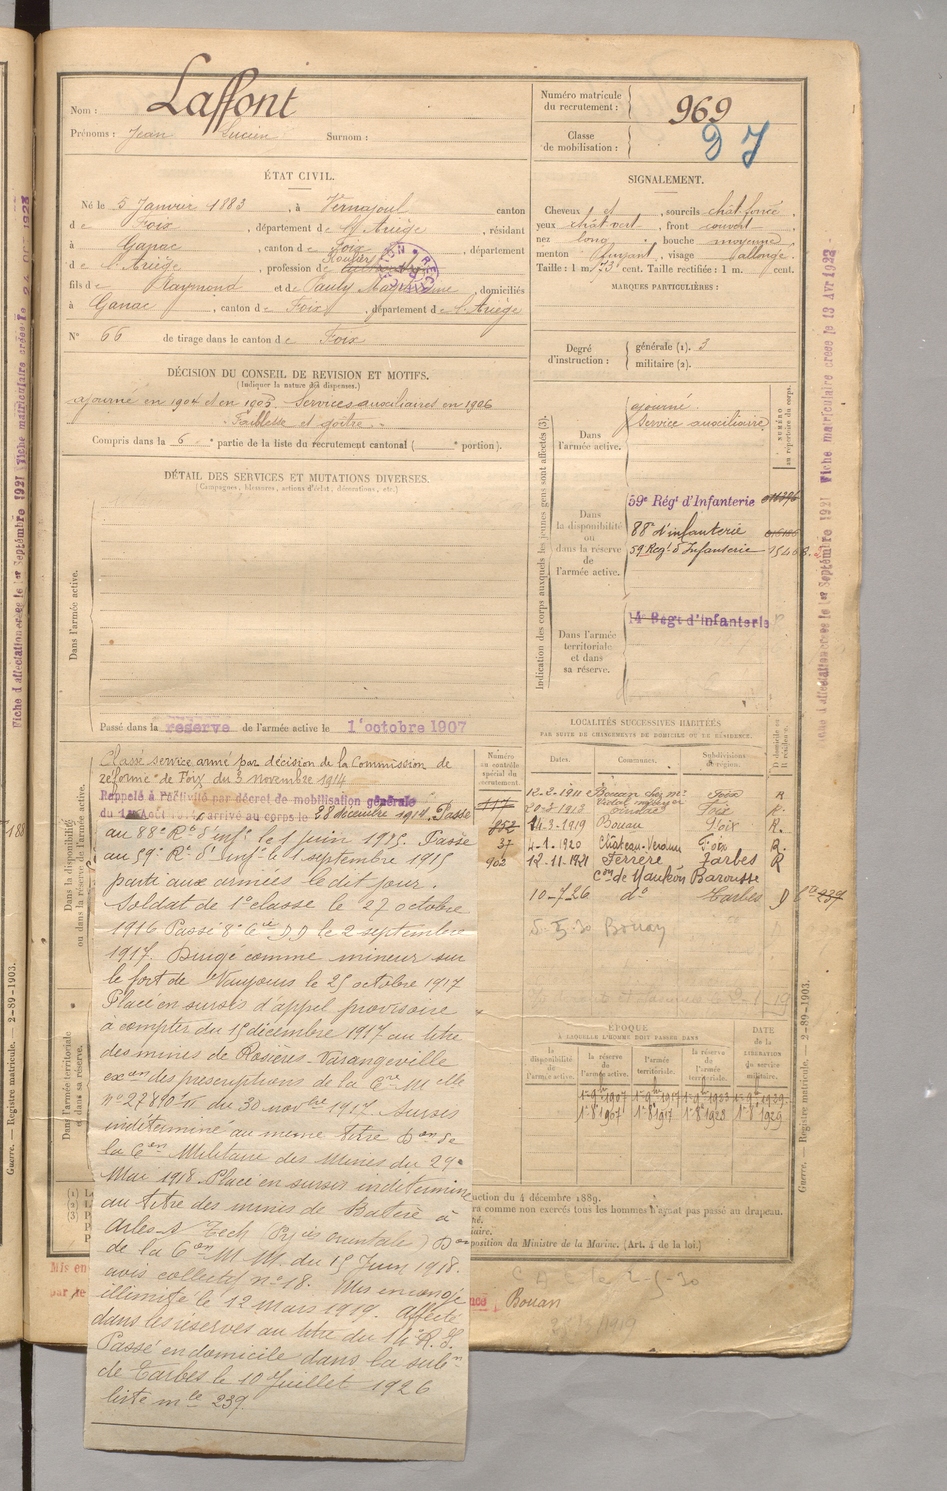 Nom : Laffont
Prénoms : Jean Lucien Surnom :
Numéro matricule du recrutement : 969
Classe de mobilisation : 07
ÉTAT CIVIL.
Né le 5 Janvier 1883, à Vernajoul canton
de Foix, département de l'Ariège, résidant
à Ganac, canton de Foix, département
de l'Ariège, profession de
fils de Raymond et de Pauly, domiciliés
à Ganac, canton de Foix, département de l'Ariège
N° 66 de tirage dans le canton de Foix
SIGNALEMENT.
Cheveux et, sourcils chât. foncé,
yeux chât. vert, front couvert
nez long, bouche moyenne,
menton fuyant, visage allongé.
Taille : 1 m. 73 cent. Taille rectifiée : 1 m. cent.
MARQUES PARTICULIÈRES :
Degré d'instruction : générale (1). 3
militaire (2).
DÉCISION DU CONSEIL DE REVISION ET MOTIFS.
(Indiquer la nature des dispenses.)
ajourné en 1904 et en 1905. Services auxiliaires en 1906
Faiblesse et goitre.
Compris dans la 6e partie de la liste du recrutement cantonal ( e portion).
DÉTAIL DES SERVICES ET MUTATIONS DIVERSES.
(Campagnes, blessures, actions d'éclat, décorations, etc.)
Dans l'armée active.
Indication des corps auxquels les jeunes gens sont affectés (3).
NUMÉRO au répertoire du corps.
Dans l'armée active.
ajourné
Service auxiliaire
Dans la disponibilité ou dans la réserve de l'armée active.
59e Régt d'Infanterie
88e d'infanterie
59 Régt d'Infanterie
Dans l'armée territoriale et dans sa réserve.
14 Régt d'infanterie
Passé dans la réserve de l'armée active le 1er octobre 1907
Dans la disponibilité ou dans la réserve de l'armée active.
Dans l'armée territoriale et dans sa réserve.
Classé service armé par décision de la Commission de
réforme de Foix du 3 novembre 1914
Rappelé à l'activité par décret de mobilisation générale
du 1er Août 1914 arrivé au corps le 28 décembre 1914. Passé
au 88e Rt d'infie le 1 juin 1915. Passé
au 59e Rt d'infie le 1 septembre 1915
parti aux armées le dit jour.
Soldat de 1e classe le 27 octobre
1916 Passé 8e Cie DD le 2 septembre
1917. Dirigé comme mineur sur
le fort de Vaujours le 25 octobre 1917
Placé en sursis d'appel provisoire
à compter du 15 décembre 1917 au titre
des mines de Rosières-Varangeville
exon des prescriptions de la Cre Mlle
du 30 novbre 1917. Sursis
indéterminé au même titre Don de
la Con Militaire des Mines du 24
Mai 1918. Placé en sursis indéterminé
au titre des mines de Batère à
Arles-s/Tech (Pyrées orientales) Don
de la Con M.M. du 15 Juin 1918.
avis collectif n° 18. Mis en congé
illimité le 12 Mars 1919. Affecté
dans les réserves au titre du 14e R.I.
Passé en domicile dans la subn
de Tarbes le 10 Juillet 1926
liste mle 239.
Numéro au contrôle spécial du recrutement.
LOCALITÉS SUCCESSIVES HABITÉES
PAR SUITE DE CHANGEMENTS DE DOMICILE OU DE RÉSIDENCE.
Dates. Communes. Subdivisions de région. D domicile ou R résidence.
117 12-2-1911 Bouan chez Mr Vidal métayer Foix R
20-3-1913 Foix R.
852 14-3-1919 Bouan Foix R.
37 4-1-1920 Château-Verdun Foix R.
902 12-11-1921 Ferrère Tarbes R
Con de Mauléon Barousse
10-7-26 do Tarbes D
5-5-30 Bouan
ÉPOQUE
À LAQUELLE L'HOMME DOIT PASSER DANS
DATE de la LIBÉRATION du service militaire.
la disponibilité de l'armée active. la réserve de l'armée active. l'armée territoriale. la réserve de l'armée territoriale.
uction du 4 décembre 1889.
ra comme non exercés tous les hommes n'ayant pas passé au drapeau.
position du Ministre de la Marine. (Art. 4 de la loi.)
Mis en
par
Bouan
Guerre. — Registre matricule. 2-89-1903.
Fiche d'affectation créée le 1er Septembre 1921 Fiche matriculaire créée le 13 Avr 1923
Guerre. — Registre matricule. — 2-89-1903.